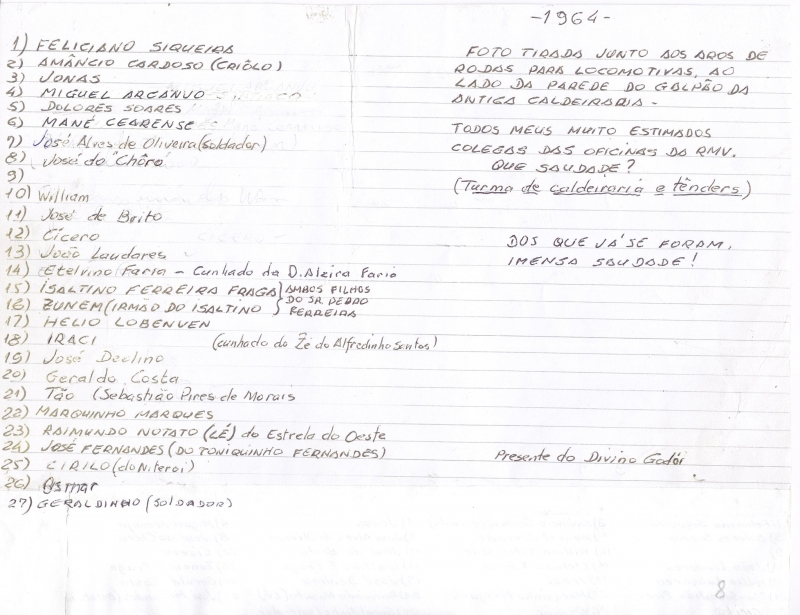 -1964-
1) FELICIANO SIQUEIRA
2) AMÂNCIO CARDOSO (CRIÔLO)
3) JONAS
4) MIGUEL ARCANJO
5) DOLORES SOARES
6) MANÉ CEARENSE
7) José Alves de Oliveira (soldador)
8) José do "Chôro"
9)
10) William
11) José de Brito
12) Cícero
13) João Laudares
14) Etelvino Faria - Cunhado da D. Alzira Faria
15) ISALTINO FERREIRA FRAGA } AMBOS FILHOS
DO SR. PEDRO
16) ZUNEM (IRMÃO DO ISALTINO } FERREIRA
17) HELIO LOBENVEN
18) IRACI (cunhado do Zé do Alfredinho Santos)
19) José Deolino
20) Geraldo Costa
21) Tão (Sebastião Pires de Morais
22) MARQUINHO MARQUES
23) RAIMUNDO NOTATO (LÉ) do Estrela do Oeste
24) JOSÉ FERNANDES (DO TONIQUINHO FERNANDES)
25) CIRILO (do Niteroi)
26) Osmar
27) GERALDINHO (SOLDADOR)
FOTO TIRADA JUNTO AOS AROS DE
RODAS PARA LOCOMOTIVAS, AO
LADO DA PAREDE DO GALPÃO DA
ANTIGA CALDEIRARIA -
TODOS MEUS MUITO ESTIMADOS
COLEGAS DAS OFICINAS DA RMV.
QUE SAUDADE?
(Turma de caldeiraria e tênders)
DOS QUE JÁ SE FORAM,
IMENSA SAUDADE!
Presente do Divino Godói
8